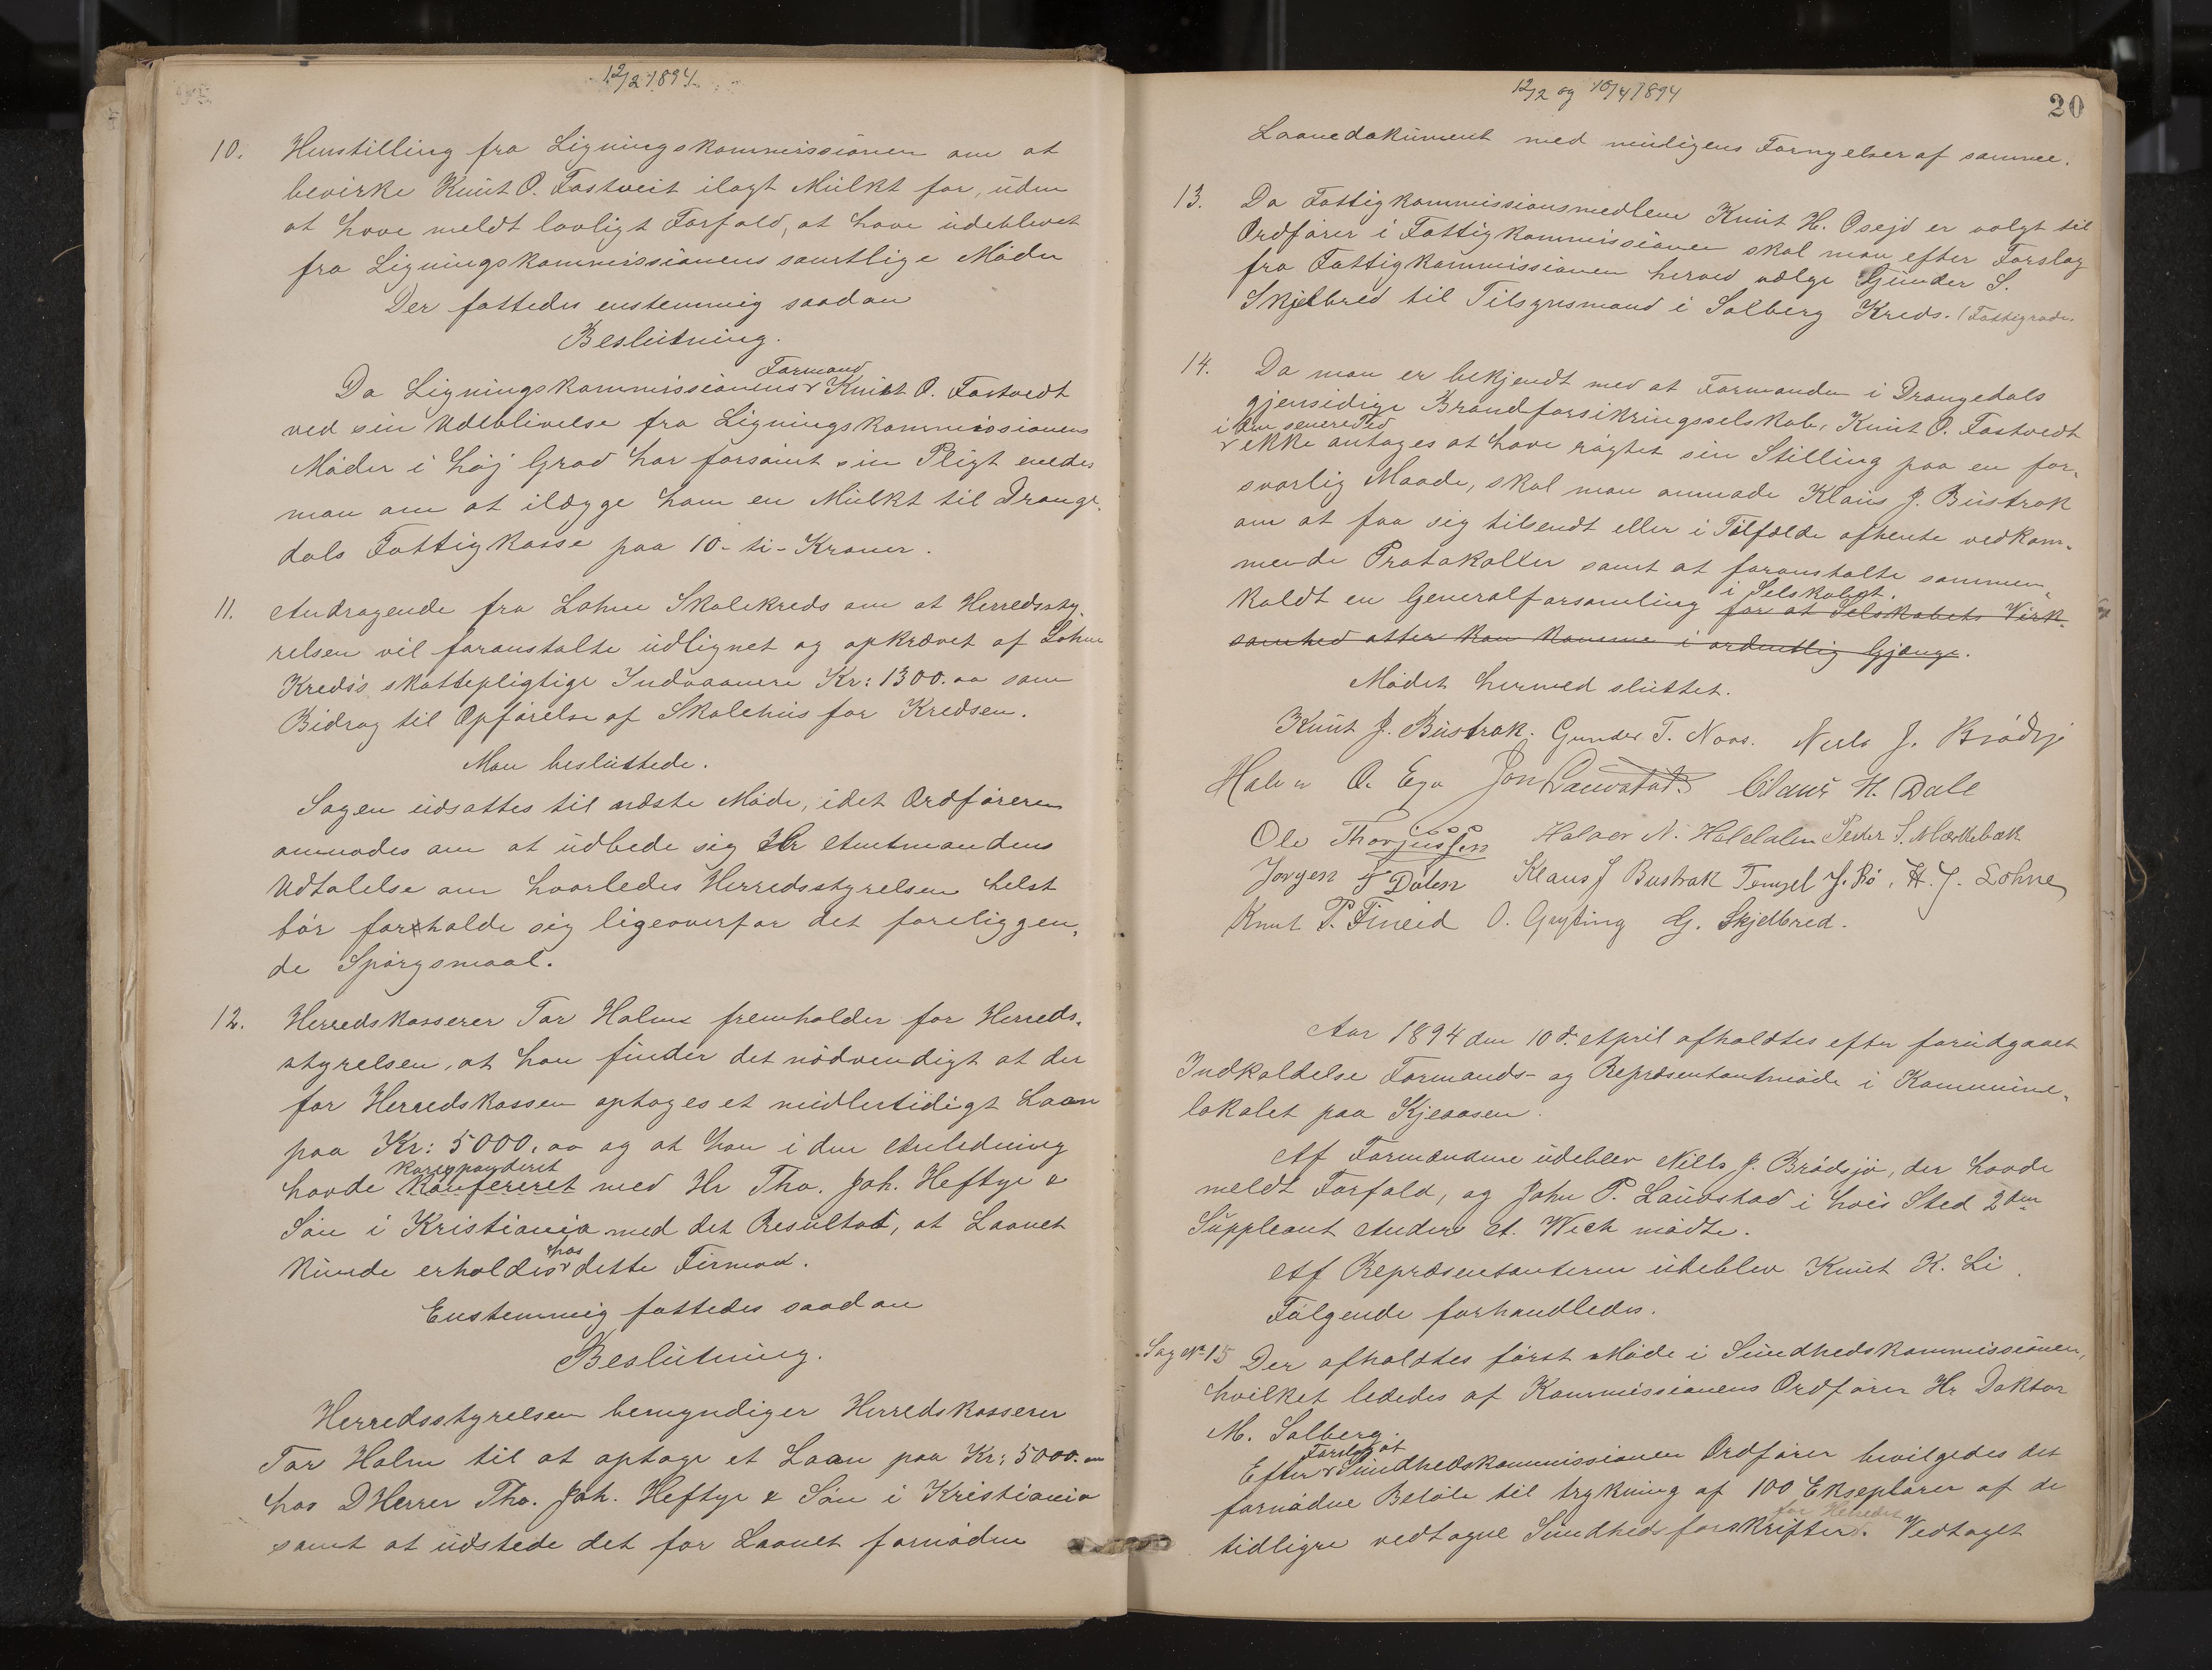 12/2 1894.
10. Henstilling fra Ligningskommissionen om at
bevirke Knut O. Tostveit ilagt Mulkt for, uden
at have meldt lovligt Forfald, at have udeblevet
fra Ligningskommissionens samtlige Møder
Der fattedes enstemmig saadan
Beslutning.
Formand
Da Ligningskommissionens Knut O. Tostvedt
ved sin Udeblivelse fra Ligningskommissionens
Møder i høj Grad har forsømt sin Pligt enedes
man om at ilægge ham en Mulkt til Drange-
dals Fattigkasse paa 10-ti-Kroner.
11. Andragende fra Lohne Skolekreds om at Herredssty-
relsen vil foranstalte udlignet og opkrævet af Lohne
Kreds's skattepligtige Indvaanere Kr: 1300.00 som
Bidrag til Opførelse af Skolehus for Kredsen.
Man besluttede.
Sagen udsattes til næste Møde, idet Ordføreren
anmodes om at udbede sig Hr Amtmandens
Udtalelse om hvorledes Herredsstyrelsen helst
bør forholde sig ligeoverfor det foreliggen-
de Spørgsmaal.
12. Herredskasserer Tor Holm fremholder for Herreds-
styrelsen, at han finder det nødvendigt at der
for Herredskassen optages et midlertidigt Laan
paa Kr: 5000.00 og at han i den Anledning
korresponderet
havde konfereret med Hr Tho. Joh. Heftye &
Søn i Kristiania med det Resultat, at Laanet
hos
kunde erholdes dette Firma.
Enstemmig fattedes saadan
Beslutning.
Herredsstyrelsen bemyndiger Herredskasserer
Tor Holm til at optage et Laan paa Kr: 5000.00
hos DHerrer Tho. Joh. Heftye & Søn i Kristiania
samt at udstede det for Laanet fornødne
12/2 og 10/4 1894
20
Laanedokument med mulige Fornyelser af samme.
13. Da Fattigkommissionsmedlem Knut H. Osejd er valgt til
Ordfører i Fattigkommissionen skal man efter Forslag
fra Fattigkommissionen herved vælge Gunder S.
Skjelbred til Tilsynsmand i Solberg Kreds. (Fattigrode.
14. Da man er bekjendt med at Formanden i Drangedals
gjensidige Brandforsikringsselskab, Knut O. Tostvedt
i den senere Tid
ikke antages at have røgtet sin Stilling paa en for-
svarlig Maade, skal man anmode Klaus J. Bustrak
om at faa sig tilsendt eller i Tilfælde afhente vedkom-
mende Protokoller samt at foranstalte sammen-
i Selskabet.
kaldt en Generalforsamling for at Selskabets Virk-
somhed atter kan komme i ordentlig Gjænge.
Mødet hermed sluttet.
Knut J. Bustrak. Gunder T. Naas. Niels J. Brødsjø
Halvor O. Ege Jon Lauvstad. Claus H. Dale
Ole Thorjussen Halvor N. Heldalen Peder S. Mærkebæk
Jorgen T Dalen Klaus J Bustrak Tengel J. Bø. H. J. Lohne
Knut P. Fineid O. Gryting G. Skjelbred.
Aar 1894 den 10de April afholdtes efter forudgaaet
Indkaldelse Formands- og Repræsentantmøde i Kommune-
lokalet paa Kjeaasen.
Af Formændene udeblev Niels J. Brødsjø, der havde
meldt Forfald, og John P. Lauvstad i hvis Sted 2den
Suppleant Anders A. Weeh mødte.
Af Repræsentanterne udeblev Knut K. Li.
Følgende forhandledes.
Sag No 15 Der afholdtes først Møde i Sundhedskommissionen,
hvilket lededes af Kommissionens Ordfører Hr. Doktor
M. Solberg.
Forslag af
Efter Sundhedskommissionen Ordfører bevilgedes det
fornødne Beløb til trykning af 100 Ekseplarer af de
for Herredet
tidligere vedtagne Sundhedsforskrifter. Vedtaget